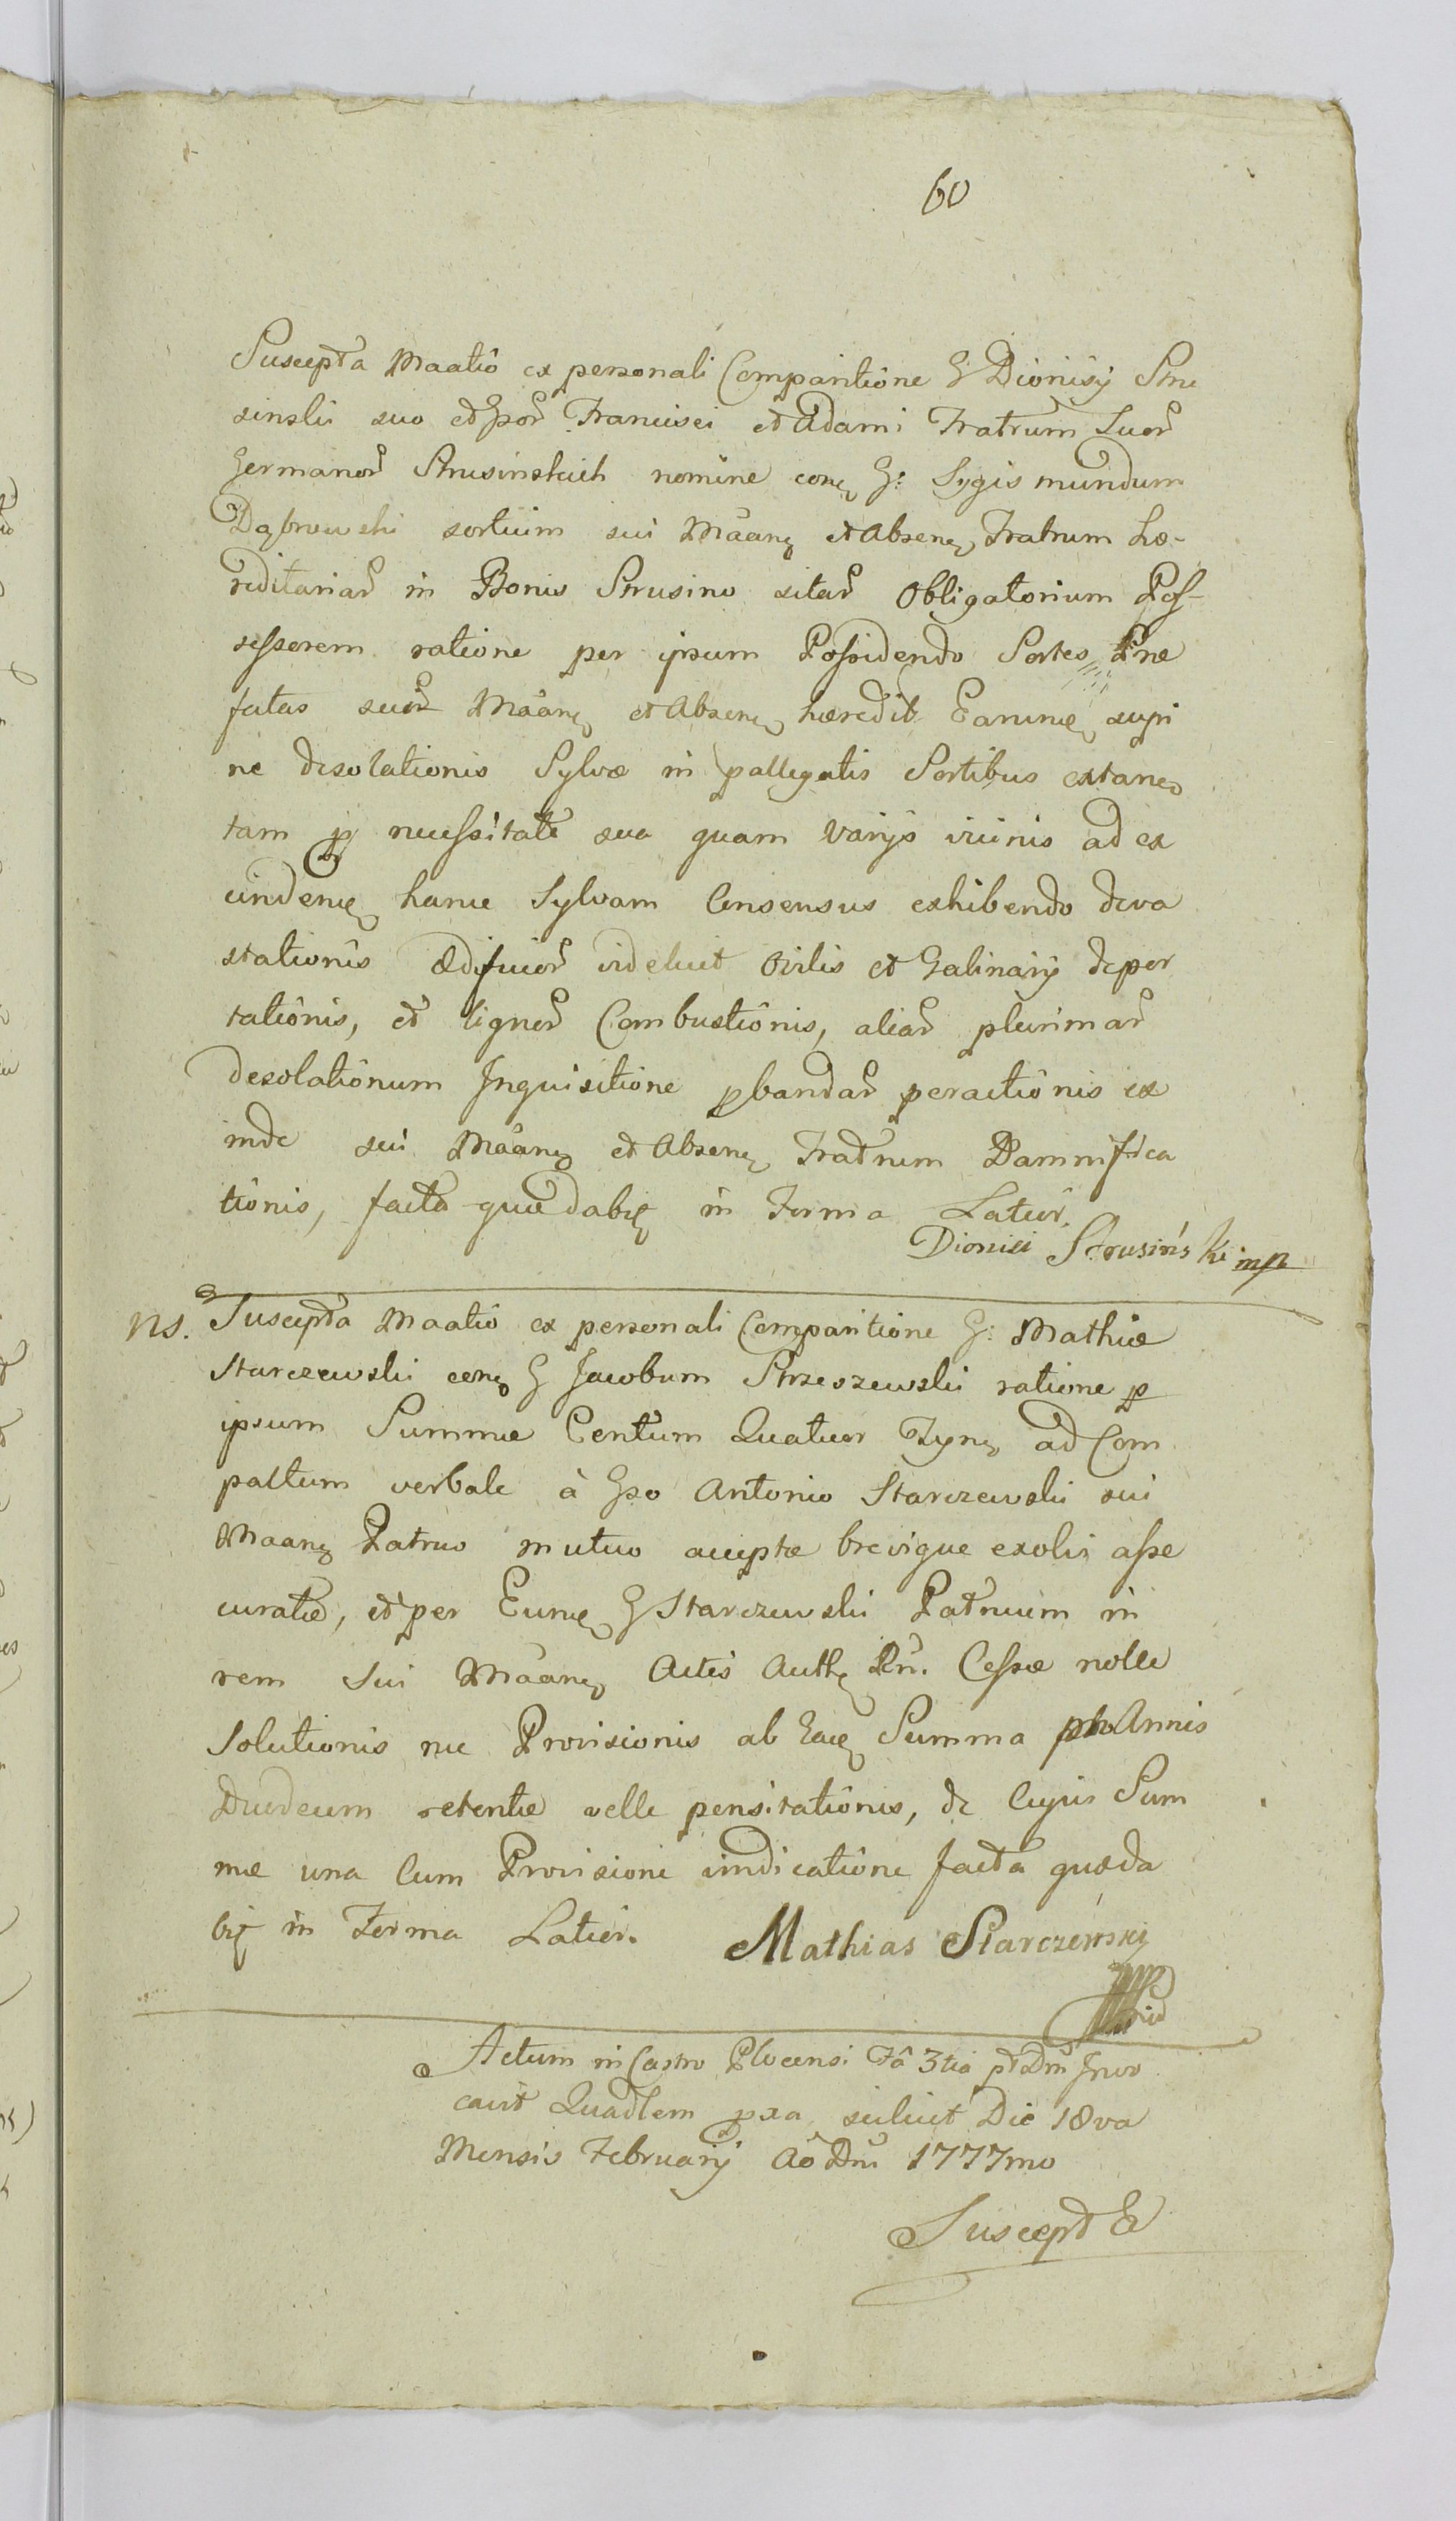 60
Suscepta Maatio ex personali Comparitione G Dionisij Stru
sinski suo et Gsor Francisci et Adami Fratrum Suor
Germanor Strusinskich nomine cong G: Sygismundum
Dąbrowski sortium sui Maang et Abseng Fratrum hæ-
reditariar in Bonis Strusino sitar Obligatorium Pos-
sessorem ratione per ipsum Possidendo Sortes Præ
fatas suor Maang et Abseng hæredit Earumq supi
ne desolationis Sylvæ in pallegatis Sortibus extang
tam p necessitate sua quam varijs vicinis ad ex
cindeng hanc Sylvam Consensus exhibendo deva
stationis Ædificior videlicet Ovilis et Galinarij depor
tationis, et lignor Combustionis, aliar plurimar
desolationum Inquisitione pbandar peractionis ex
inde sui Maang et Abseng Fratrum Damnifica
tionis, facta quædabit in Forma Latior.
Dionizi Strusinski mp
ns. Suscepta Maatio ex personali Comparitione G: Mathiæ
Starczewski cong G Jacobum Strzeszewski ratione p
ipsum Summæ Centum Quatuor Tyng ad Com
pactum verbale à Gso Antonio Starczewski sui
Maang Patruo mutuo acceptæ brevique exolvi asse
curatæ, et per Eunq G Starczewski Patruum in
rem Sui Maang Actis Authq Pn. Cessæ nolle
Solutionis nec Provisionis ab Eaq Summa pro Annis
Duodecim retentæ velle pensitationis, de Cujus Sum
mæ una Cum Provisione vindicatione facta quæda
bit in Forma Latior. Mathias Starczewski
Actum in Castro Plocensi Fâ 3tia pt Dm Invo
cavit Quadlem pxa scilicet Die 18va
Mensis Februarij Ao Dni 1777mo
Suscept E